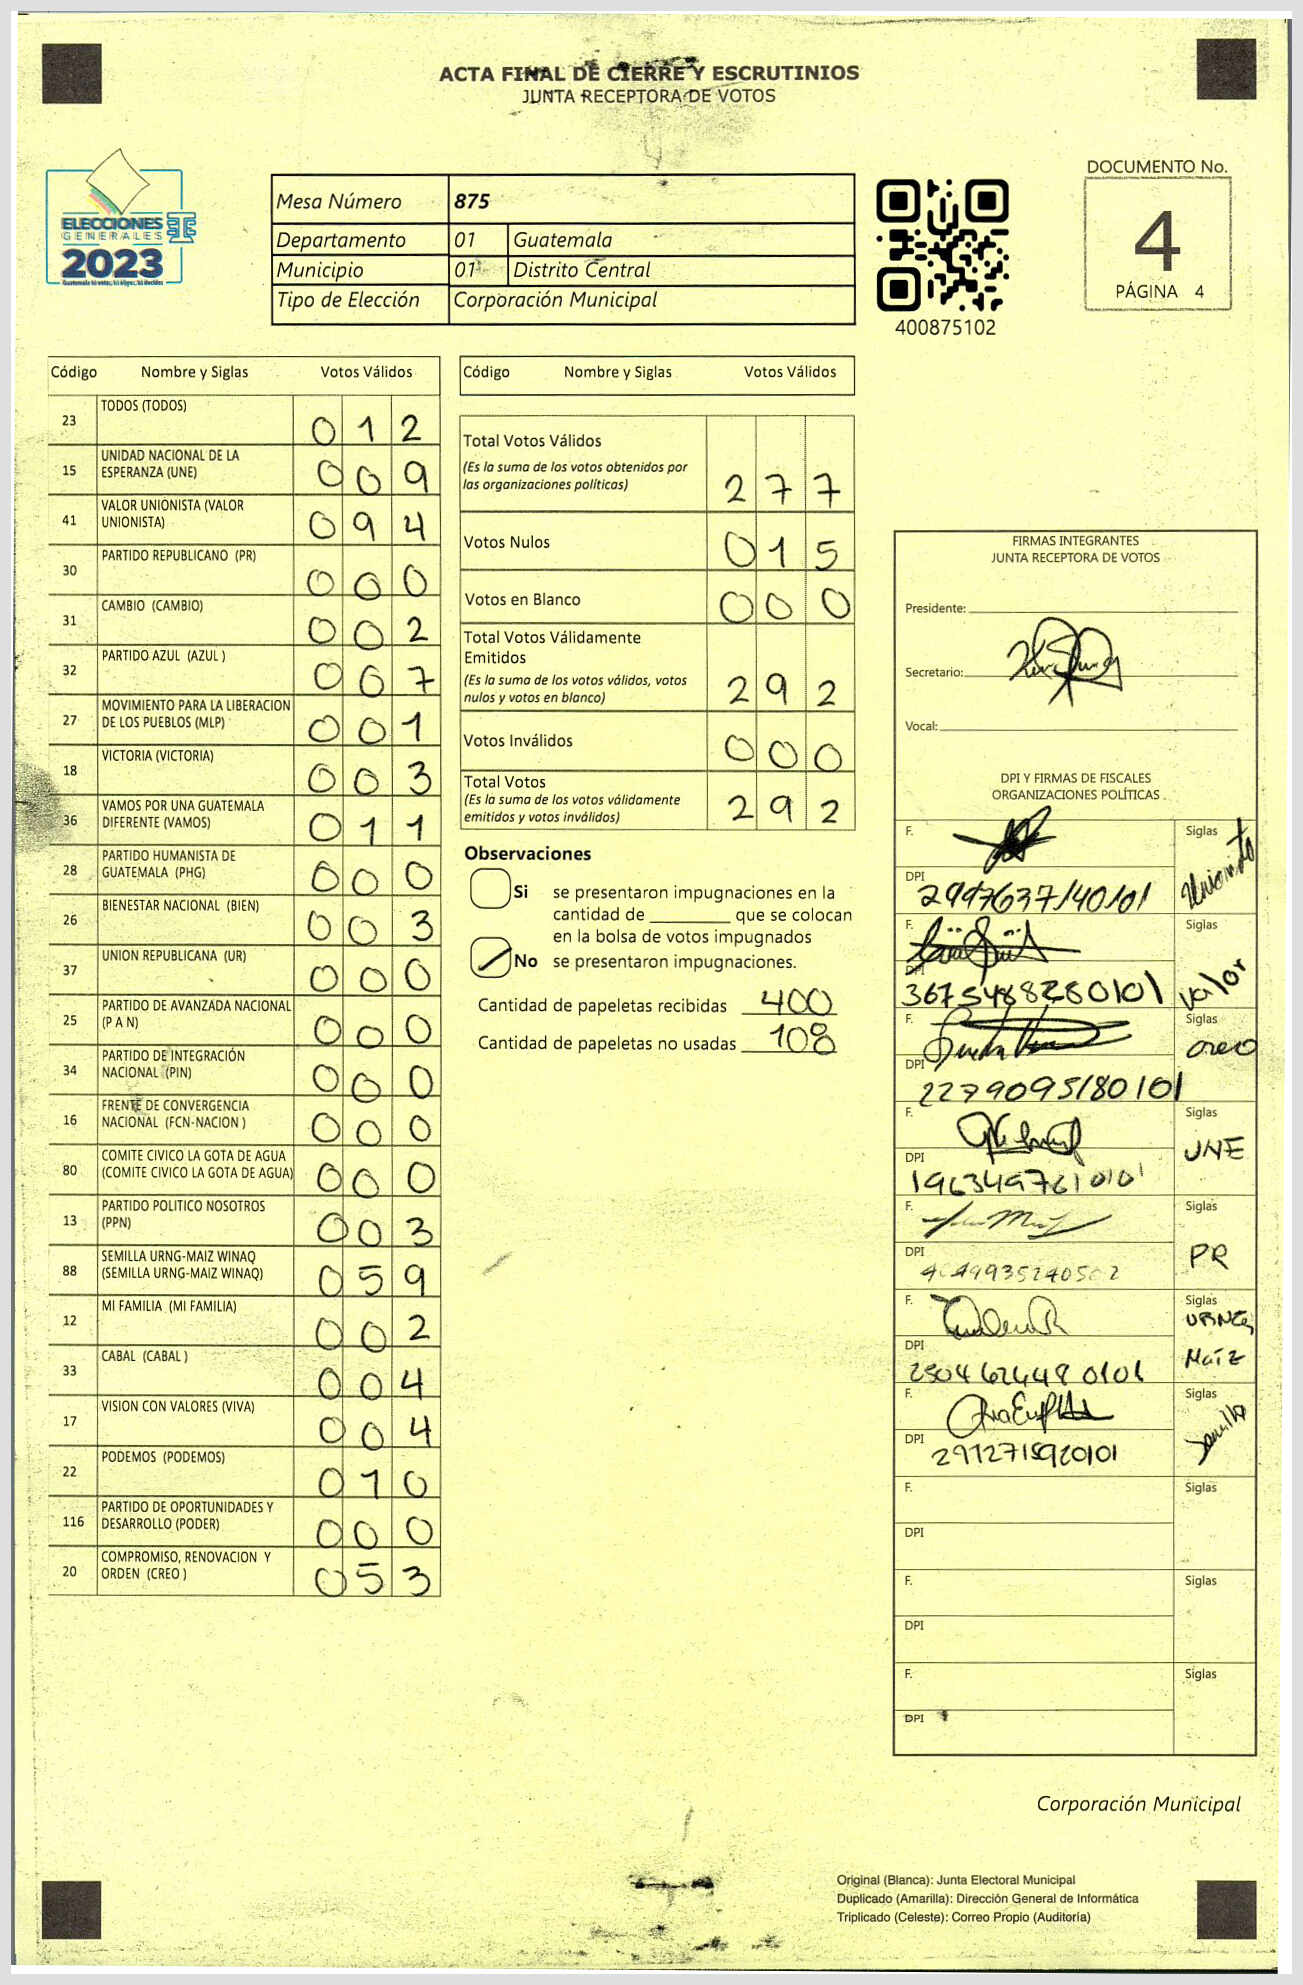 ACTA FINAL DE CIERRE Y ESCRUTINIOS
JUNTA RECEPTORA DE VOTOS
ELECCIONES
GENERALES
2023
Mesa Número 875
Departamento 01 Guatemala
Municipio 01 Distrito Central
Tipo de Elección Corporación Municipal
400875102
DOCUMENTO No.
4
PÁGINA 4
Código Nombre y Siglas Votos Válidos
23 TODOS (TODOS) 012
15 UNIDAD NACIONAL DE LA ESPERANZA (UNE) 009
41 VALOR UNIONISTA (VALOR UNIONISTA) 094
30 PARTIDO REPUBLICANO (PR) 000
31 CAMBIO (CAMBIO) 002
32 PARTIDO AZUL (AZUL ) 007
27 MOVIMIENTO PARA LA LIBERACION DE LOS PUEBLOS (MLP) 001
18 VICTORIA (VICTORIA) 003
36 VAMOS POR UNA GUATEMALA DIFERENTE (VAMOS) 011
28 PARTIDO HUMANISTA DE GUATEMALA (PHG) 000
26 BIENESTAR NACIONAL (BIEN) 003
37 UNION REPUBLICANA (UR) 000
25 PARTIDO DE AVANZADA NACIONAL (P A N) 000
34 PARTIDO DE INTEGRACIÓN NACIONAL (PIN) 000
16 FRENTE DE CONVERGENCIA NACIONAL (FCN-NACION ) 000
80 COMITE CIVICO LA GOTA DE AGUA (COMITE CIVICO LA GOTA DE AGUA) 000
13 PARTIDO POLITICO NOSOTROS (PPN) 003
88 SEMILLA URNG-MAIZ WINAQ (SEMILLA URNG-MAIZ WINAQ) 059
12 MI FAMILIA (MI FAMILIA) 002
33 CABAL (CABAL ) 004
17 VISION CON VALORES (VIVA) 004
22 PODEMOS (PODEMOS) 010
116 PARTIDO DE OPORTUNIDADES Y DESARROLLO (PODER) 000
20 COMPROMISO, RENOVACION Y ORDEN (CREO ) 053
Código Nombre y Siglas Votos Válidos
Total Votos Válidos
(Es la suma de los votos obtenidos por
las organizaciones políticas) 277
Votos Nulos 015
Votos en Blanco 000
Total Votos Válidamente
Emitidos
(Es la suma de los votos válidos, votos
nulos y votos en blanco) 292
Votos Inválidos 000
Total Votos
(Es la suma de los votos válidamente
emitidos y votos inválidos) 292
Observaciones
Si se presentaron impugnaciones en la
cantidad de ________ que se colocan
en la bolsa de votos impugnados
No se presentaron impugnaciones.
Cantidad de papeletas recibidas 400
Cantidad de papeletas no usadas 108
FIRMAS INTEGRANTES
JUNTA RECEPTORA DE VOTOS
Presidente:
Secretario:
Vocal:
DPI Y FIRMAS DE FISCALES
ORGANIZACIONES POLÍTICAS
F. Siglas Unionista
DPI
F. Siglas Valor
DPI 3675488280101
F. Siglas CREO
DPI 2279095180101
F. Siglas UNE
DPI 1963497610101
F. Siglas PR
DPI
F. Siglas URNG
MAIZ
DPI 2504624480101
F. Siglas Semilla
DPI 2992715920101
F. Siglas
DPI
F. Siglas
DPI
F. Siglas
DPI
Corporación Municipal
Original (Blanca): Junta Electoral Municipal
Duplicado (Amarilla): Dirección General de Informática
Triplicado (Celeste): Correo Propio (Auditoría)